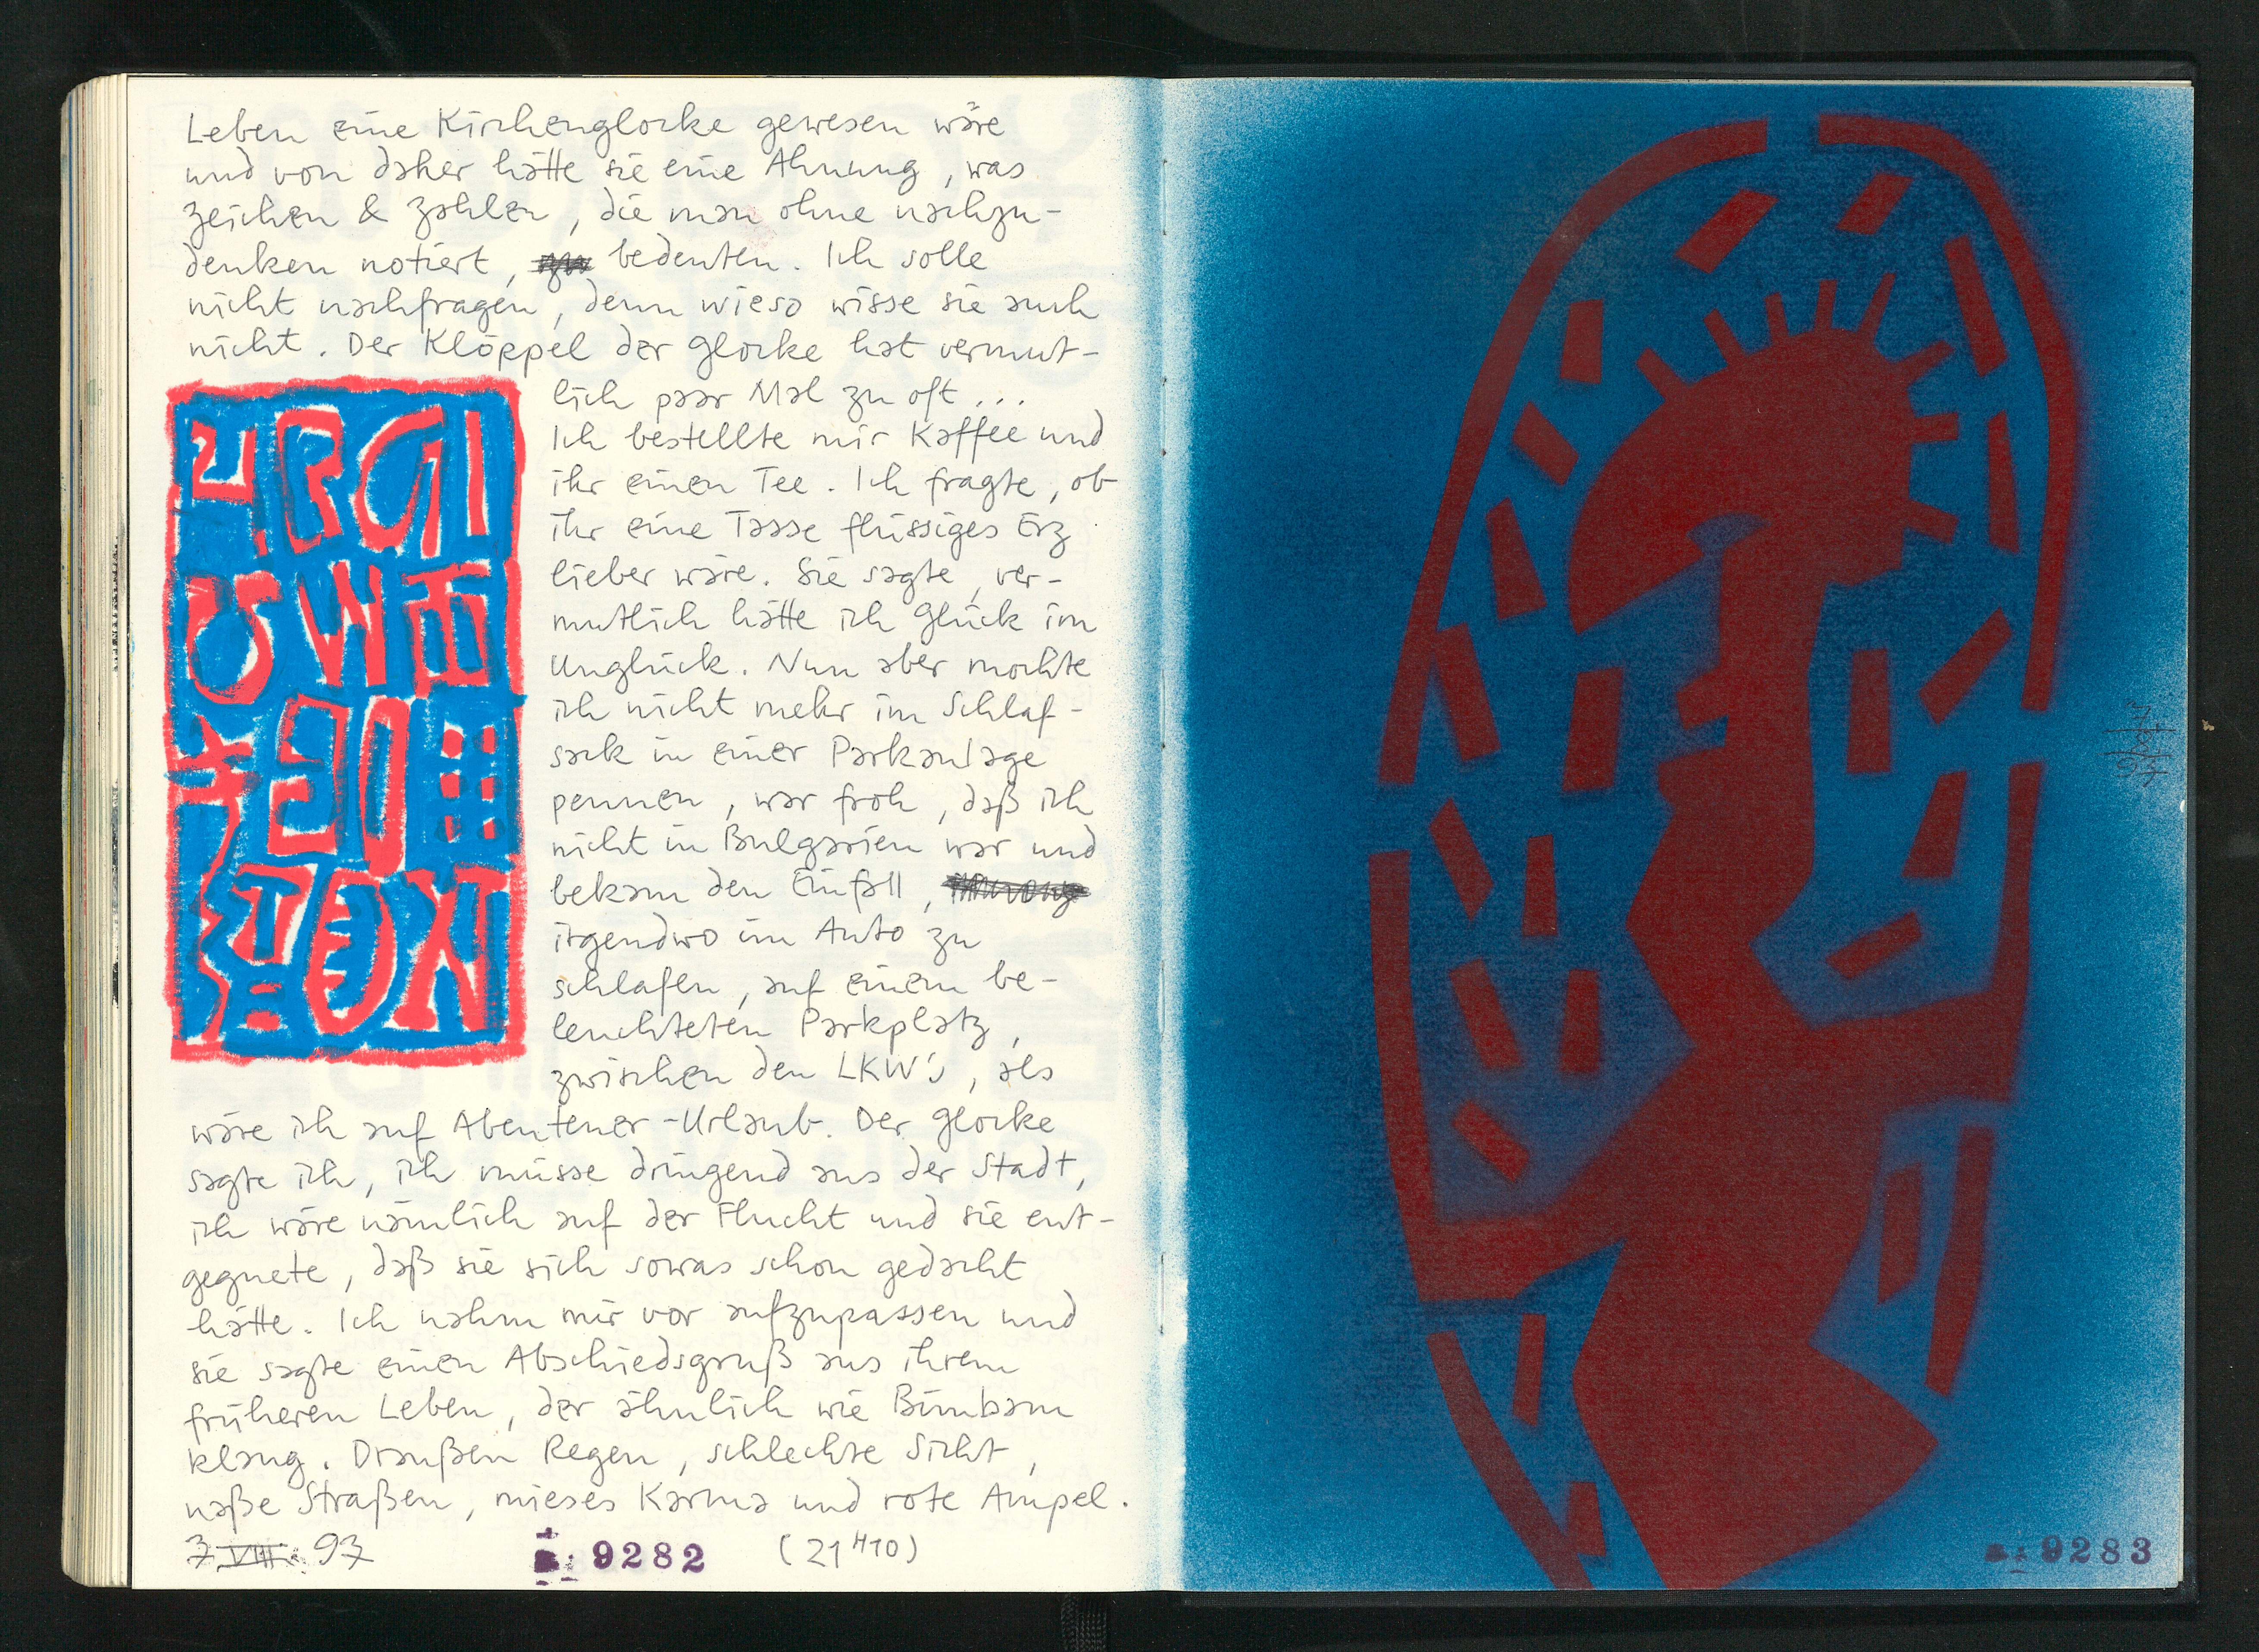 Leben eine Kirchenglocke gewesen wäre
und von daher hätte sie eine Ahnung, was
zeichen & zahlen, die man ohne nachzu-
denken notiert, bedeuten. Ich solle
nicht nachfragen, denn wieso wisse sie auch
nicht. Der Klöppel der glocke hat vermut-
lich paar Mal zu oft ...
Ich bestellte mir Kaffee und
ihr einen Tee. Ich fragte, ob
ihr eine Tasse flüssiges Erz
lieber wäre. Sie sagte, ver-
mutlich hätte ich glück im
Unglück. Nun aber mochte
ich nicht mehr im Schlaf-
sack in einer Parkanlage
pennen, war froh, daß ich
nicht in Bulgarien war und
bekam den Einfall,
irgendwo im Auto zu
schlafen, auf einem be-
leuchteten Parkplatz,
zwischen den LKW's, als
wäre ich auf Abenteuer-Urlaub. Der glocke
sagte ich, ich müsse dringend aus der Stadt,
ich wäre nämlich auf der Flucht und sie ent-
gegnete, daß sie sich sowas schon gedacht
hätte. Ich nahm mir vor aufzupassen und
sie sagte einen Abschiedsgruß aus ihrem
früheren Leben, der ähnlich wie Bimbam
klang. Draußen Regen, schlechte Sicht,
naße Straßen, mieses Karma und rote Ampel.
7.VIII. 97 9282 (21 H 10)
9283